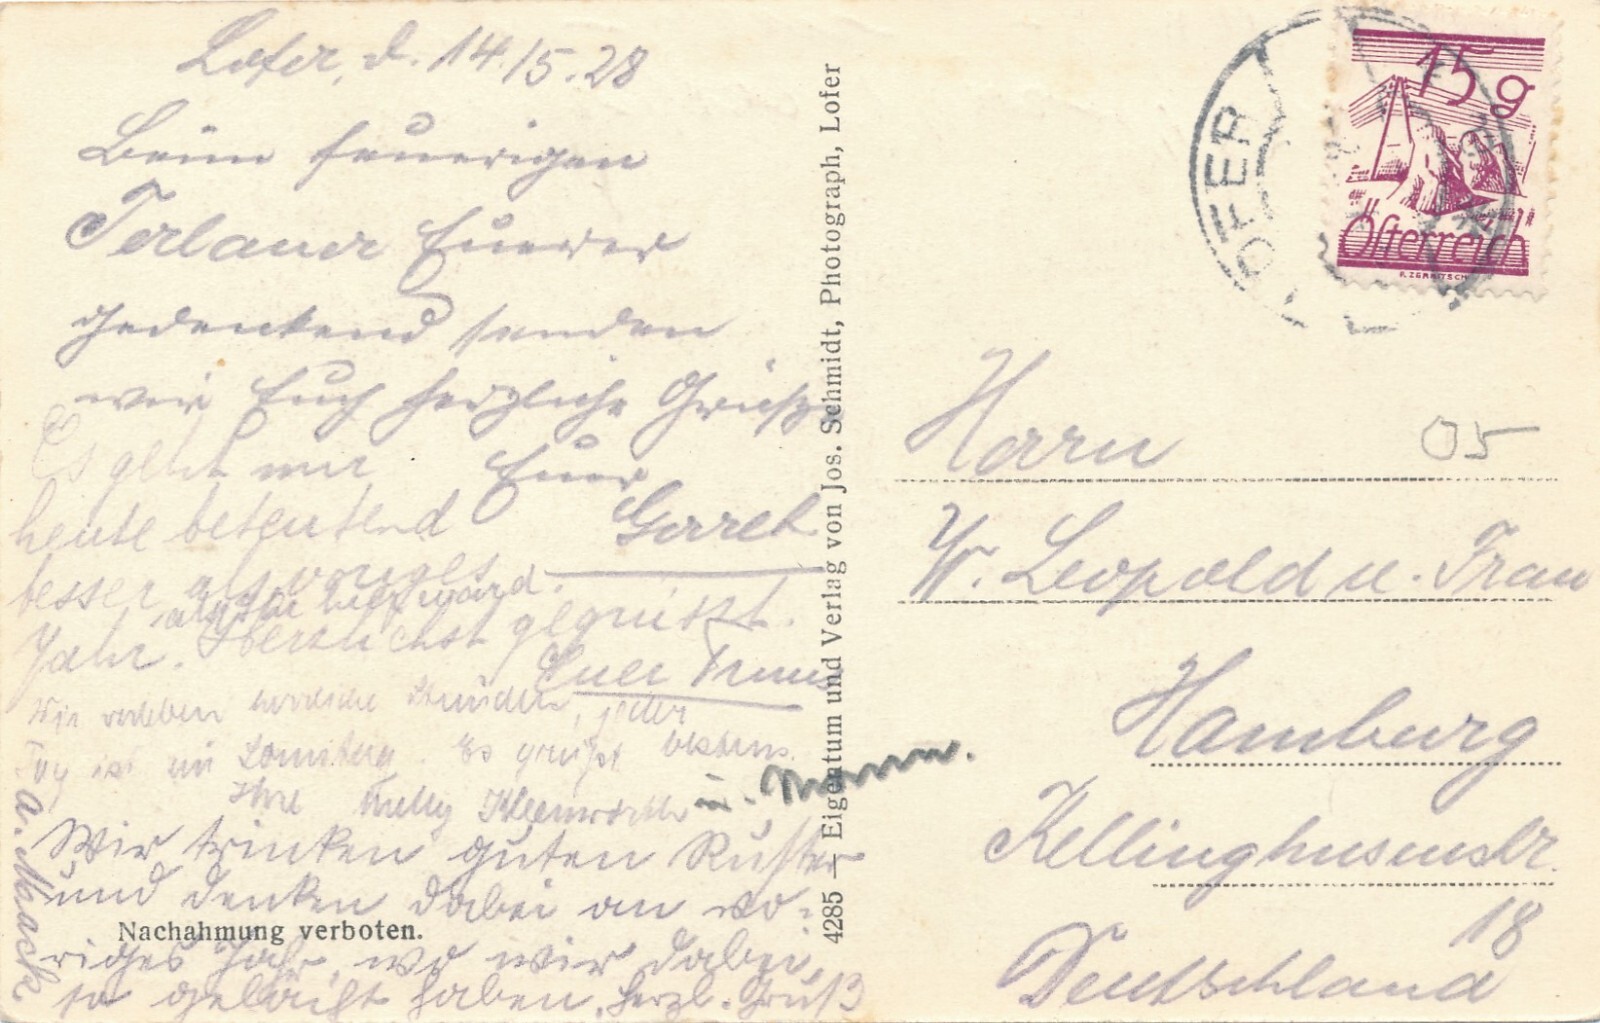 Lofer, d. 14./5.28
Beim feurigen
Terlaner Eurer
gedenkend senden
wir Euch herzliche Grüße
Euer
Gerret
Es geht mir
heute bedeutend
besser als voriges
Jahr. Herzlichst gegrüßt.
Euer
Wir verleben herrliche Stunden, jeder
Tag ist ein Sonntag. Es grüßt bestens
Ihre Nelly u. Mann.
Wir trinken guten Ruster
und denken dabei an vo-
riges Jahr, wo wir dabei
so gelacht haben. Herzl. Gruß
a. Maack
Nachahmung verboten.
4285 — Eigentum und Verlag von Jos. Schmidt, Photograph, Lofer
LOFER
15 g
Österreich
05
Herrn
W. Leopold u. Frau
Hamburg
Kellinghusenstr.
18
Deutschland